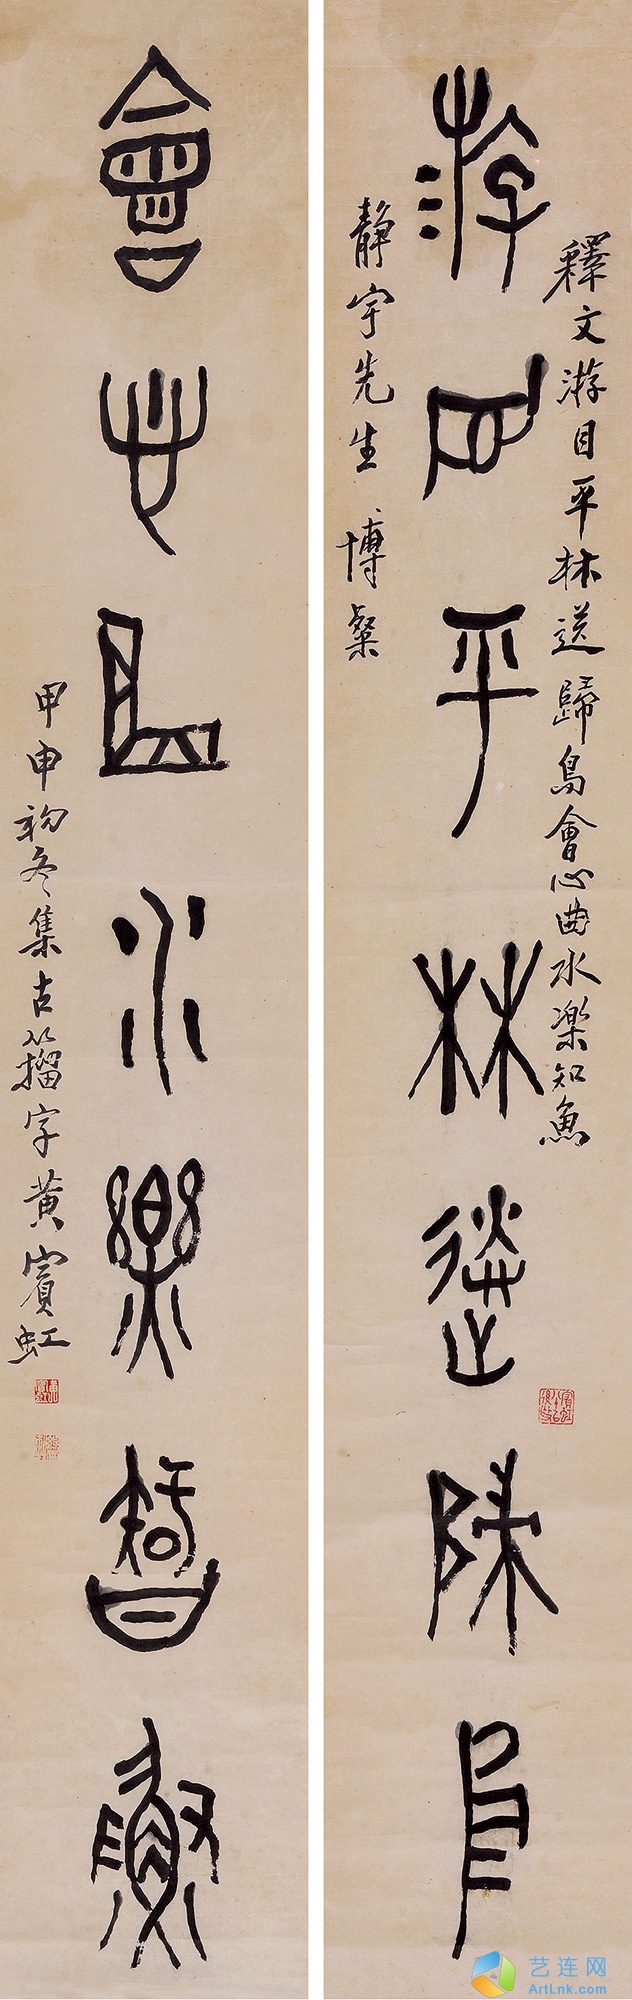 游目平林送歸鳥
釋文游目平林送歸鳥會心曲水樂知魚
靜宇先生 博粲
會心曲水樂智魚
甲申初冬集古籀字黃賓虹
艺连网
ArtLnk.com